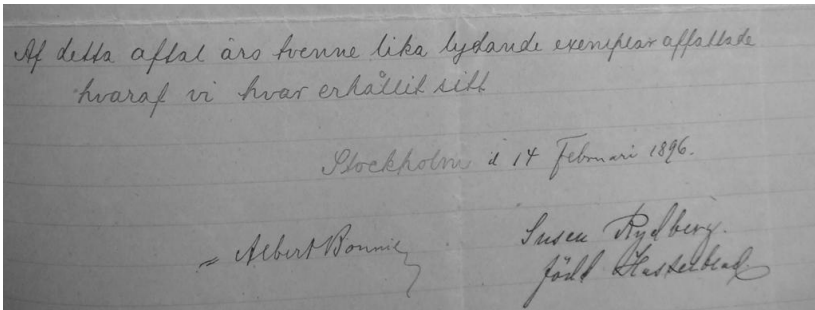 Af detta aftal ärs tvenne lika lydande exemplar affattade
hvaraf vi hvar erhållit sitt
Stockholm d 14 Februari 1896.
Albert Bonnier
Susen Rydberg.
född Hasselblad